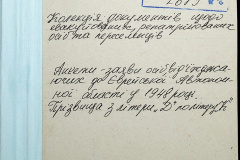 Колекція документів щодо
евакуйованих, репатрійованих
осіб та переселенців
Анкети-заяви осіб, від'їжджа-
ючих до Єврейської Автоном-
ної області у 1948 році.
Прізвища з літери „